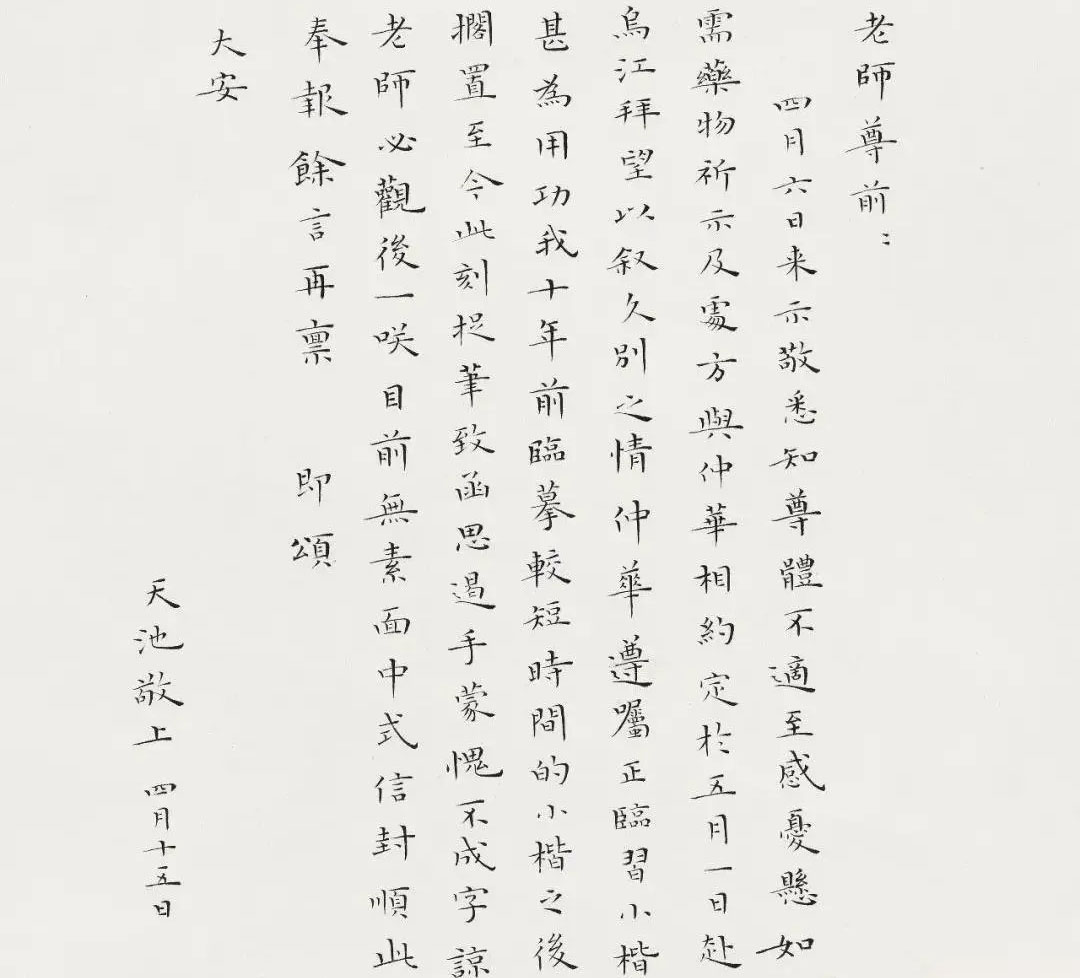 老師尊前：
四月六日来示敬悉知尊體不適至感憂懸如
需藥物祈示及處方與仲華相約定於五月一日赴
烏江拜望以叙久別之情仲華遵囑正臨習小楷
甚為用功我十年前臨摹較短時間的小楷之後
擱置至今此刻捉筆致函思遏手蒙愧不成字諒
老師必觀後一咲目前無素面中式信封順此
奉報餘言再禀 即頌
大安
天池敬上 四月十五日